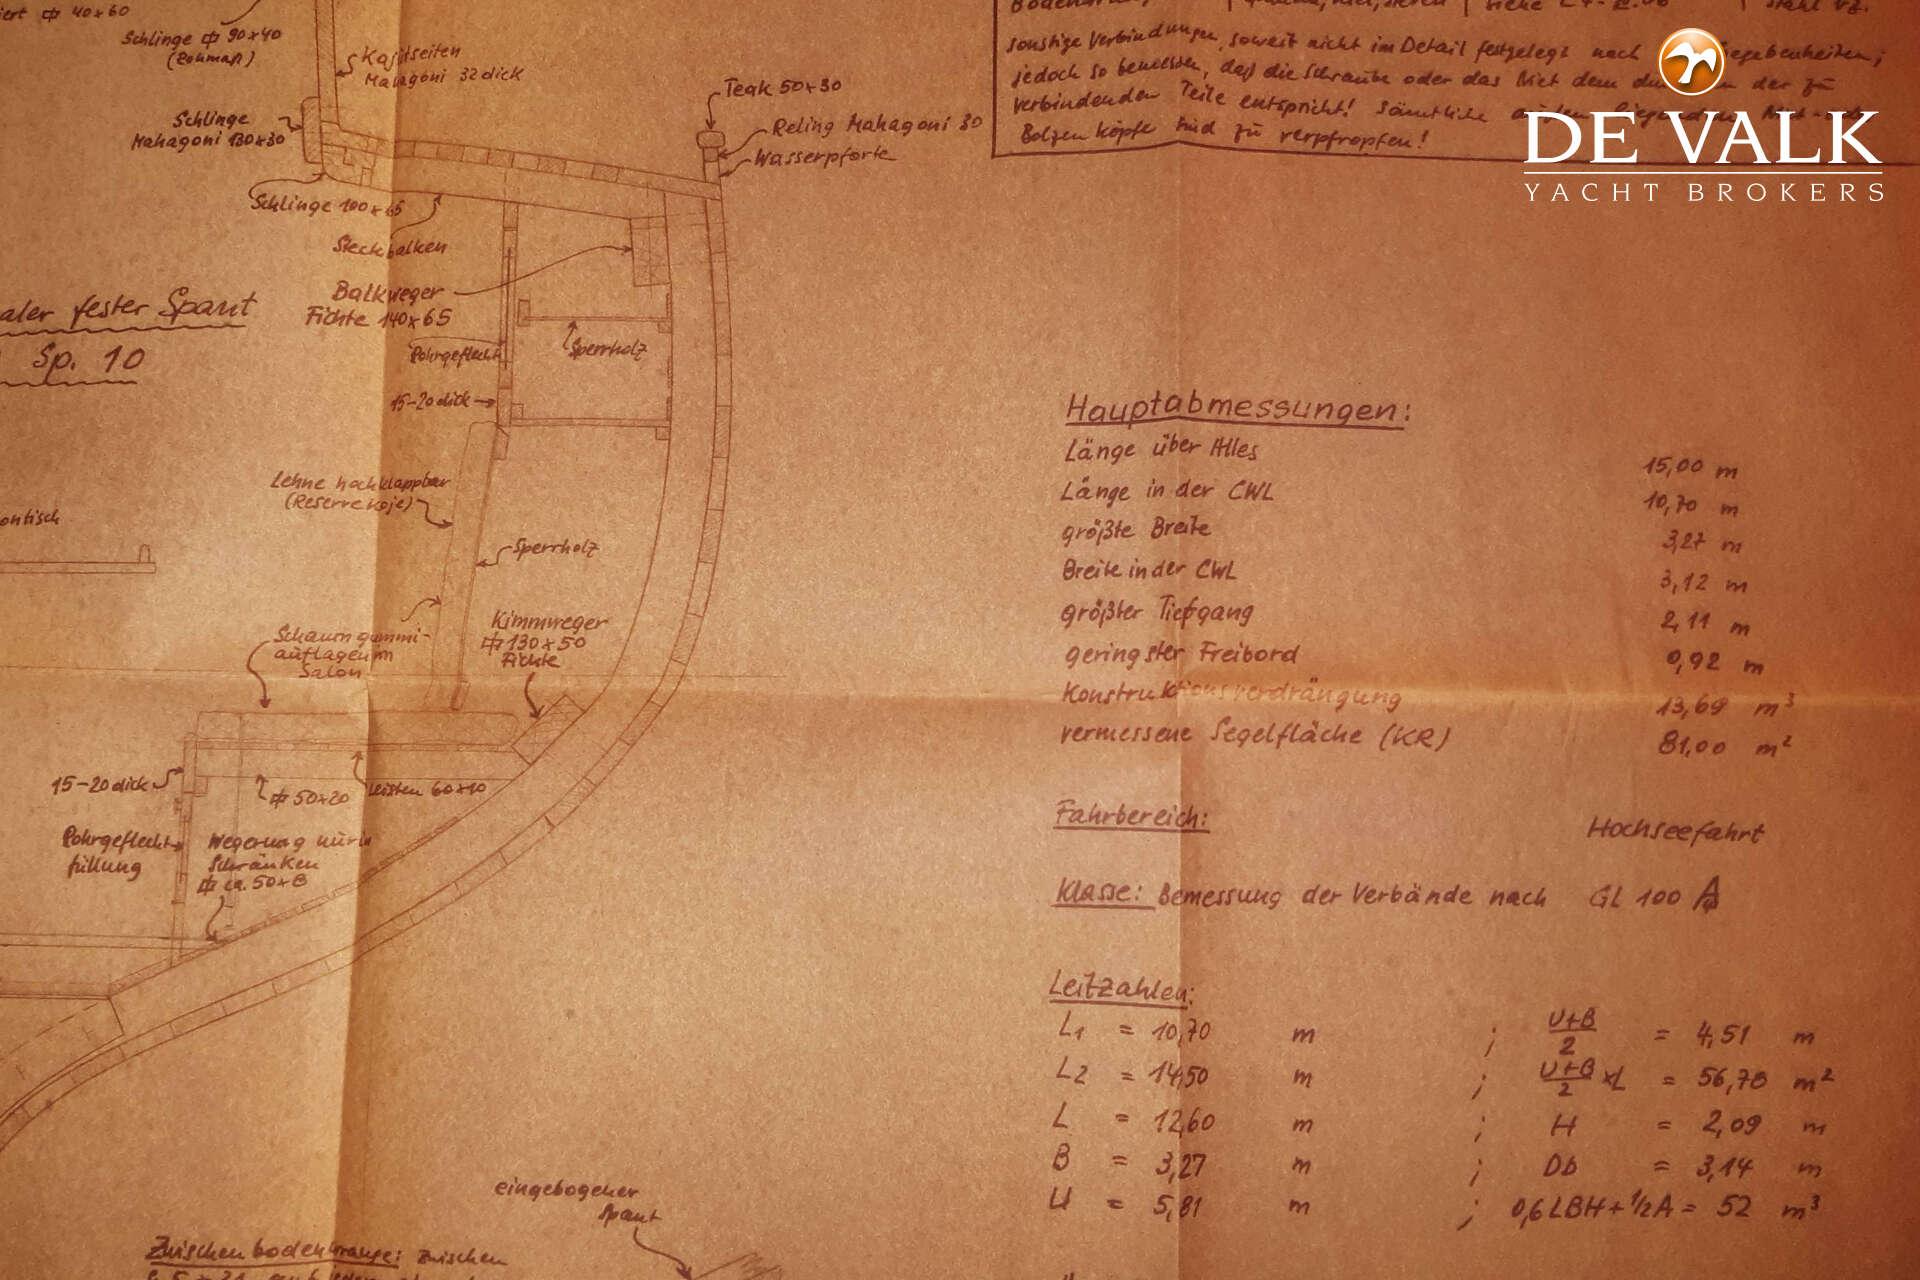 40x60
Schlinge ⌀ 90x40
(Rohmaß)
Kajütseiten
Mahagoni 32 dick
Schlinge
Mahagoni 130x30
Teak 50x30
Reling Mahagoni 30
Wasserpforte
Schlinge 100x65
Steckbalken
Balkweger
Fichte 140x65
Rohrgeflecht
Sperrholz
15-20 dick
aler fester Spant
Sp. 10
Lehne hochklappbar
(Reservekoje)
Sperrholz
Schaumgummi-
auflagen im
Salon
Kimmweger
⌀ 130x50
Fichte
15-20 dick
⌀ 50x20
Leisten 60x10
Rohrgeflecht
füllung
Wegerung nur in
Schränken
⌀ ca. 50x8
eingebogener
Spant
Zwischen
sonstige Verbindungen, soweit nicht im Detail festgelegt nach
jedoch so bemessen, daß die Schraube oder das Niet dem der zu
verbindenden Teile entspricht! Sämtliche
Bolzenköpfe sind zu verpfropfen!
DE VALK
YACHT BROKERS
Hauptabmessungen:
Länge über Alles 15,00 m
Länge in der CWL 10,70 m
größte Breite 3,27 m
Breite in der CWL 3,12 m
größter Tiefgang 2,11 m
geringster Freibord 0,92 m
Konstruktionsverdrängung 13,69 m³
vermessene Segelfläche (KR) 81,00 m²
Fahrbereich: Hochseefahrt
Klasse: Bemessung der Verbände nach GL 100 A
Leitzahlen:
L1 = 10,70 m ; U+B/2 = 4,51 m
L2 = 14,50 m ; U+B/2 xL = 56,78 m²
L = 12,60 m ; H = 2,09 m
B = 3,27 m ; Db = 3,14 m
U = 5,81 m ; 0,6 LBH + 1/2 A = 52 m³